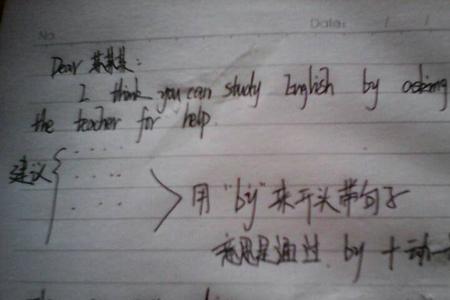 No. Date: / /
Dear 某某某:
I think you can study English by asking
the teacher for help.
建议 { .....
.....
.....
用 "by" 来开头带句子
意思是通过. by + 动